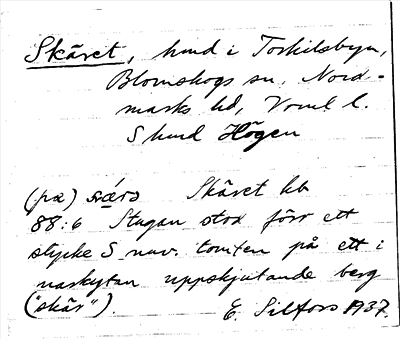 Skäret, hmd i Torkilsbyn,
Blomskogs sn, Nord-
marks hd, Vrml l.
S hmd Högen
(pa) 
Skäret hb
88:6 Stugan stod förr ett
stycke S nuv. tomten på ett i
markytan uppskjutande berg
("skär"). E. Silfors 1937.